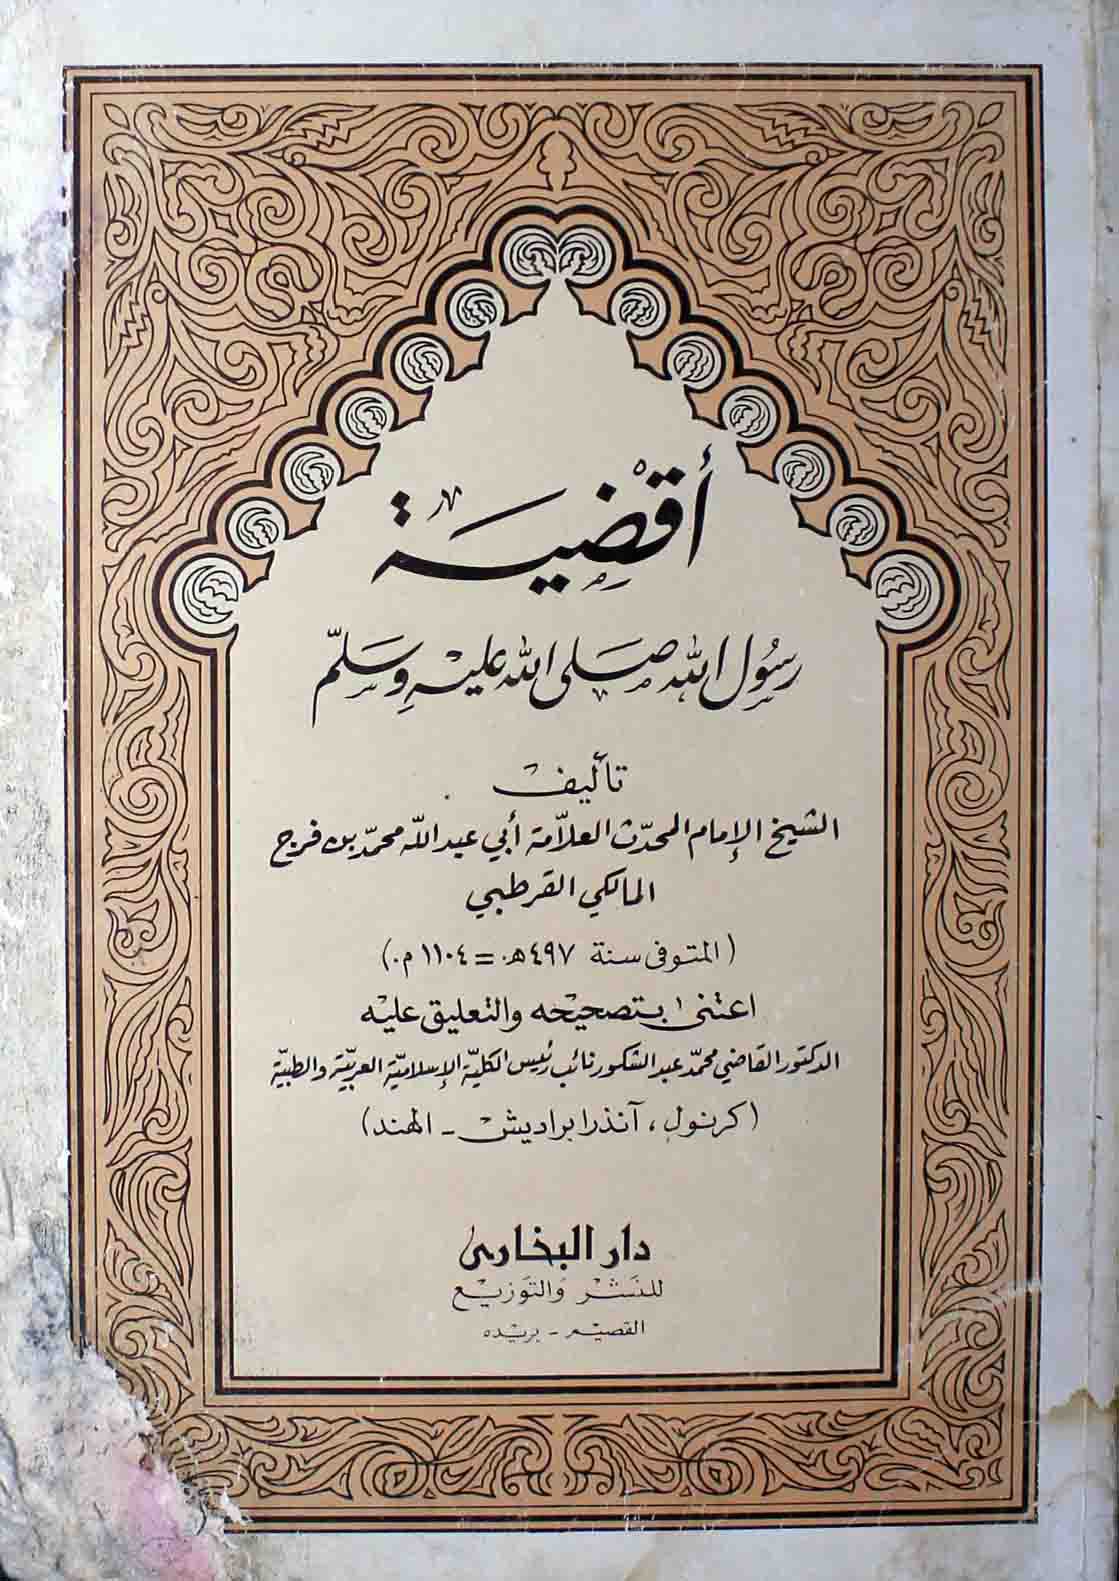 أقضية
رسول الله صلى الله عليه وسلم
تأليف
الشيخ الإمام المحدث العلامة أبي عبد الله محمد بن فرج
المالكي القرطبي
(المتوفى سنة ٤٩٧ هـ. = ١١٠٤ م.)
اعتنى بتصحيحه والتعليق عليه
الدكتور القاضي محمد عبد الشكور نائب رئيس الكلية الإسلامية العربية والطبية
(كرنول، آنذرا براديش - الهند)
دار البخارى
للنشر والتوزيع
القصيم - بريده